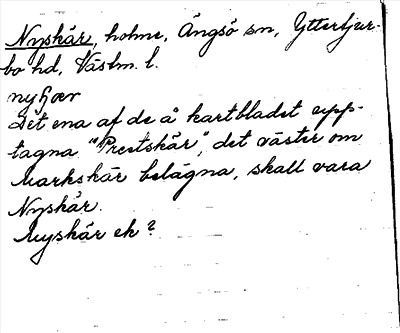 Nyskär, holme, Ängsö sn, Yttertjur-
bo hd, Västm. l.
Det ena af de å kartbladet upp-
tagna "Prestskär", det väster om
Markskär belägna, skall vara
Nyskär.
Myskär ek?